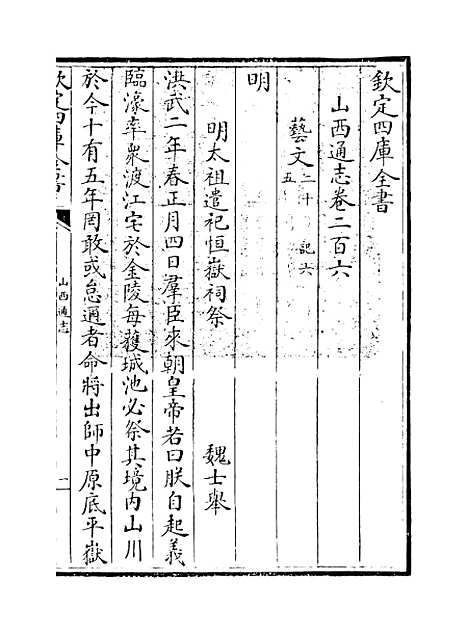 欽定四庫全書
山西通志卷二百六
藝文二十五 記六
明
明太祖遣祀恒嶽祠祭 魏士舉
洪武二年春正月四日羣臣來朝皇帝若曰朕自起義
臨濠率衆渡江宅於金陵每獲城池必祭其境内山川
於今十有五年罔敢或怠邇者命將出師中原底平嶽
欽定四庫全書
山西通志
一